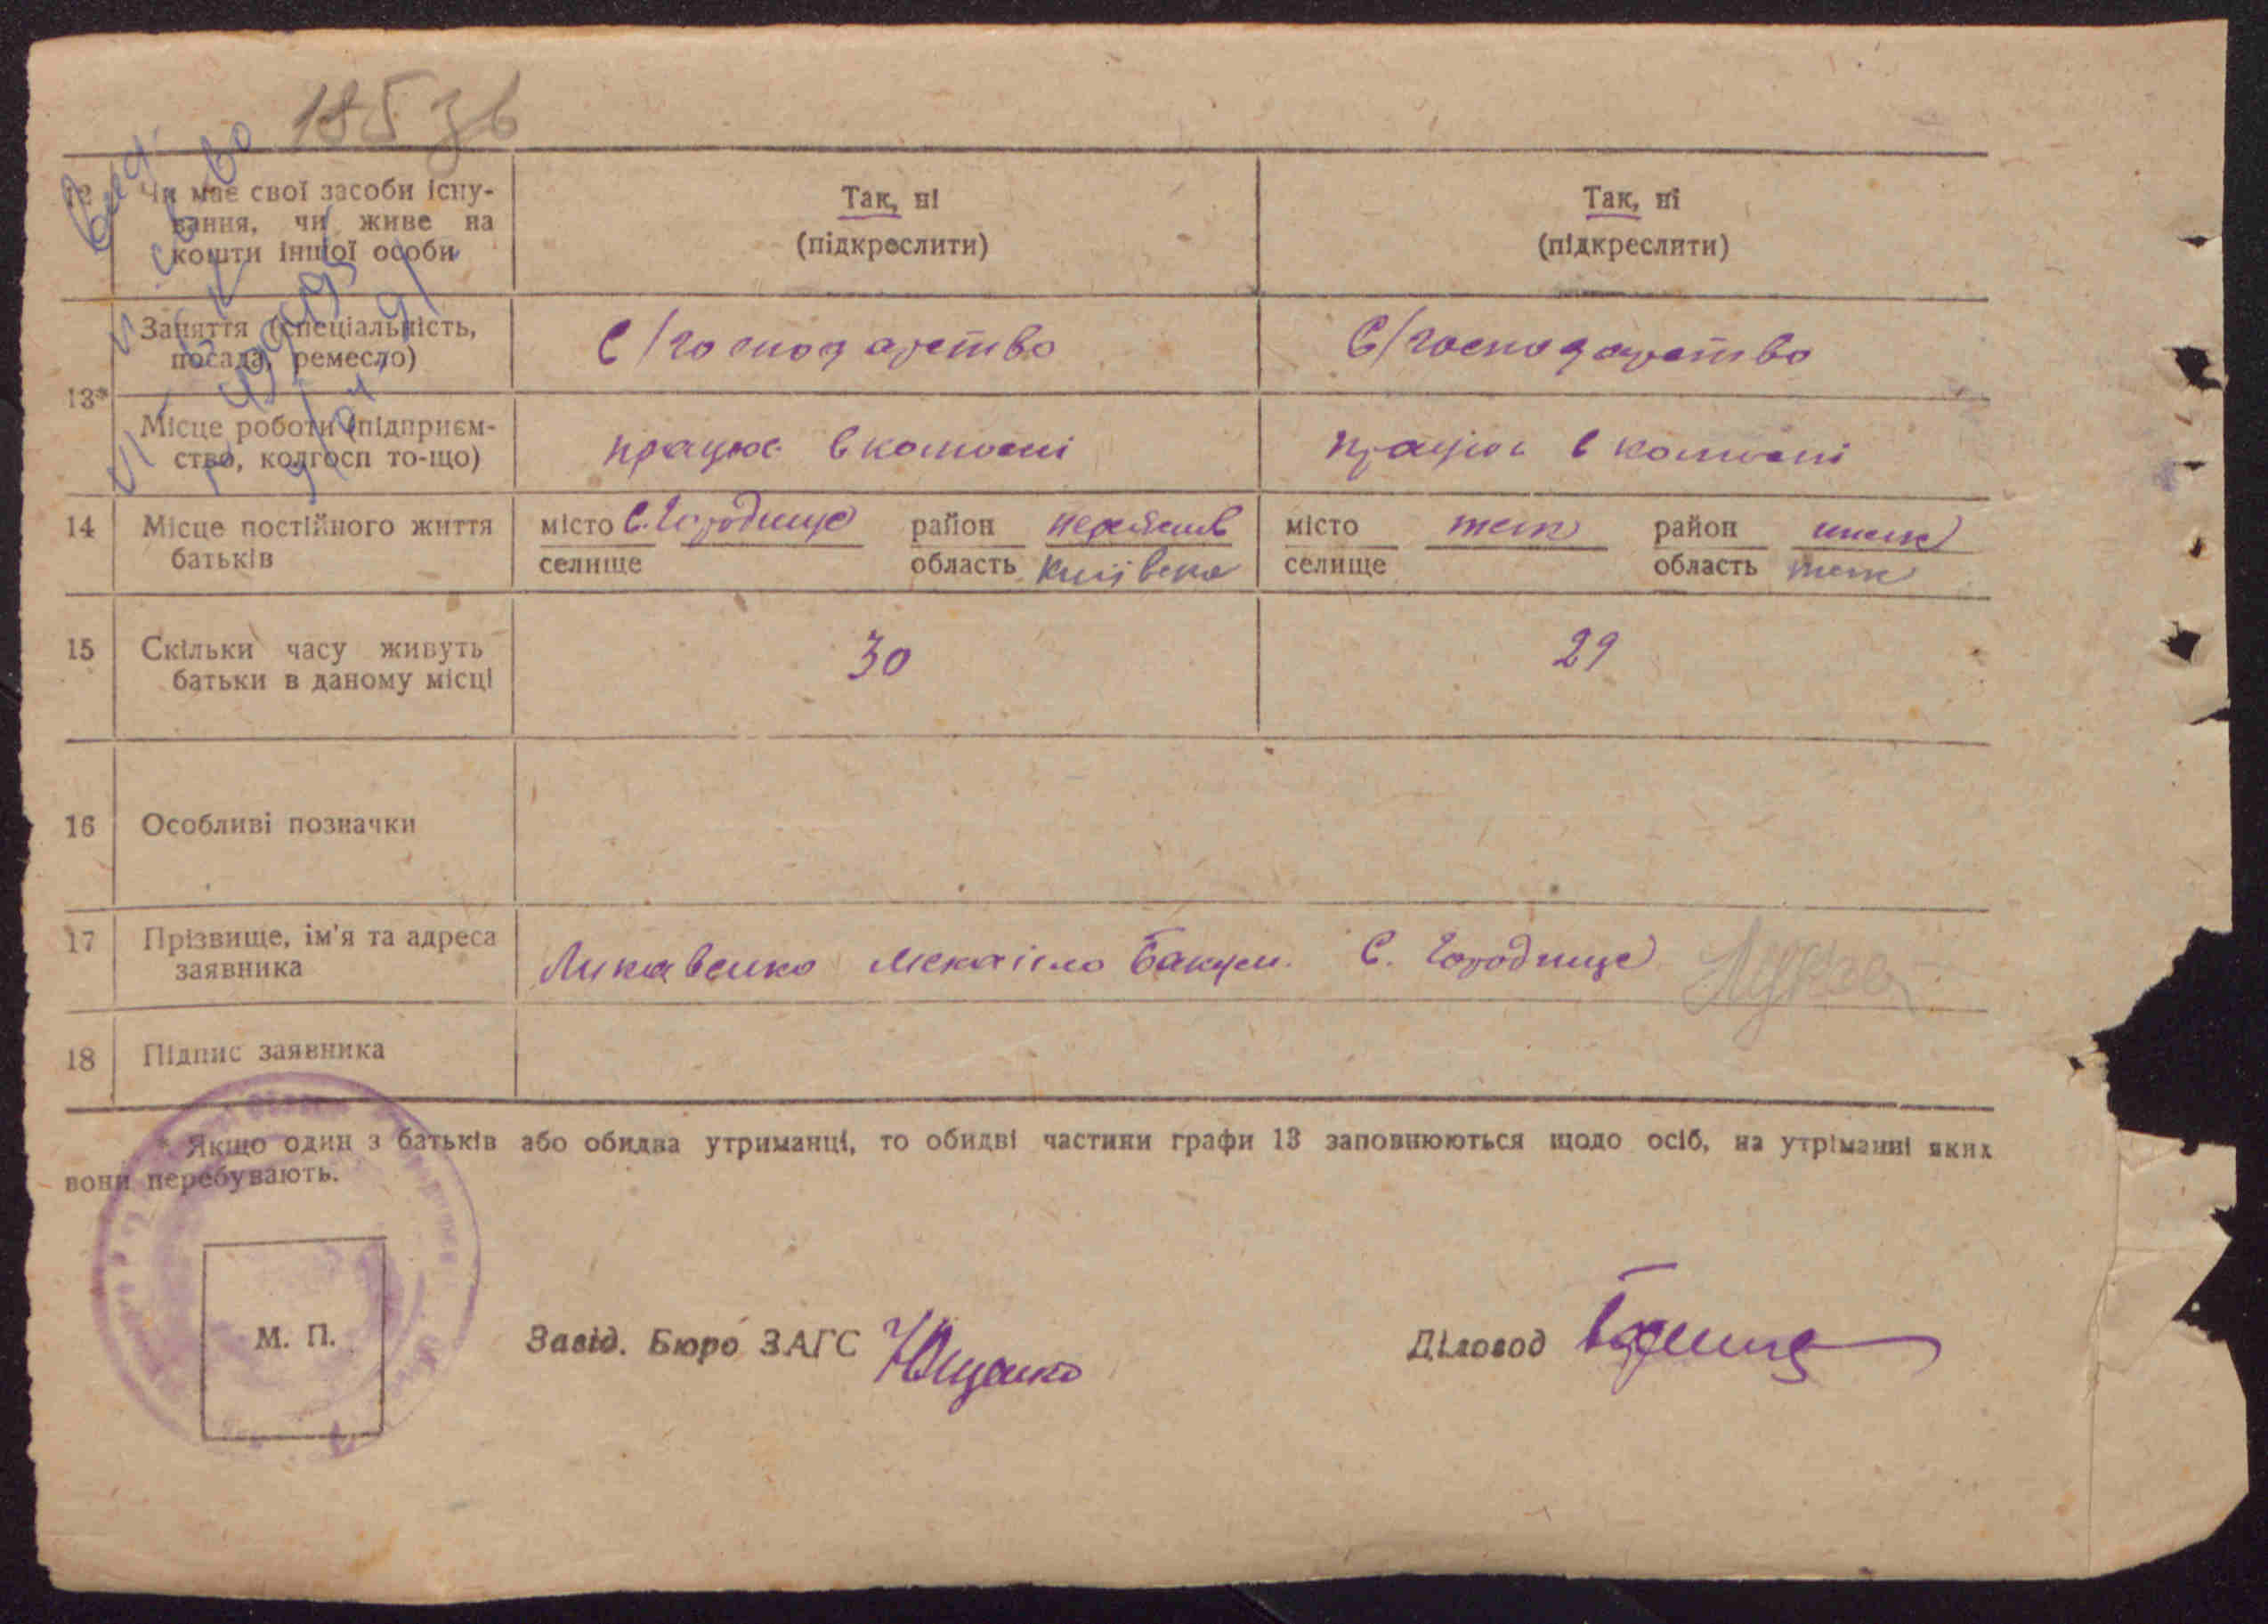 185 зв
12 Чи має свої засоби існу-
вання, чи живе на
кошти іншої особи
Так, ні
(підкреслити)
Так, ні
(підкреслити)
13*
Заняття (спеціальність,
посада, ремесло)
С/господарство
С/господарство
Місце роботи (підприєм-
ство, колгосп то-що)
працює в
працює в
14 Місце постійного життя
батьків
місто С. Городище район
селище область Київська
місто теж район теж
селище область теж
15 Скільки часу живуть
батьки в даному місці
30
29
16 Особливі позначки
17 Прізвище, ім'я та адреса
заявника
С. Городище
18 Підпис заявника
* Якщо один з батьків або обидва утриманці, то обидві частини графи 13 заповнюються щодо осіб, на утріманні яких
вони перебувають.
М. П.
Завід. Бюро ЗАГС Ющенко
Діловод